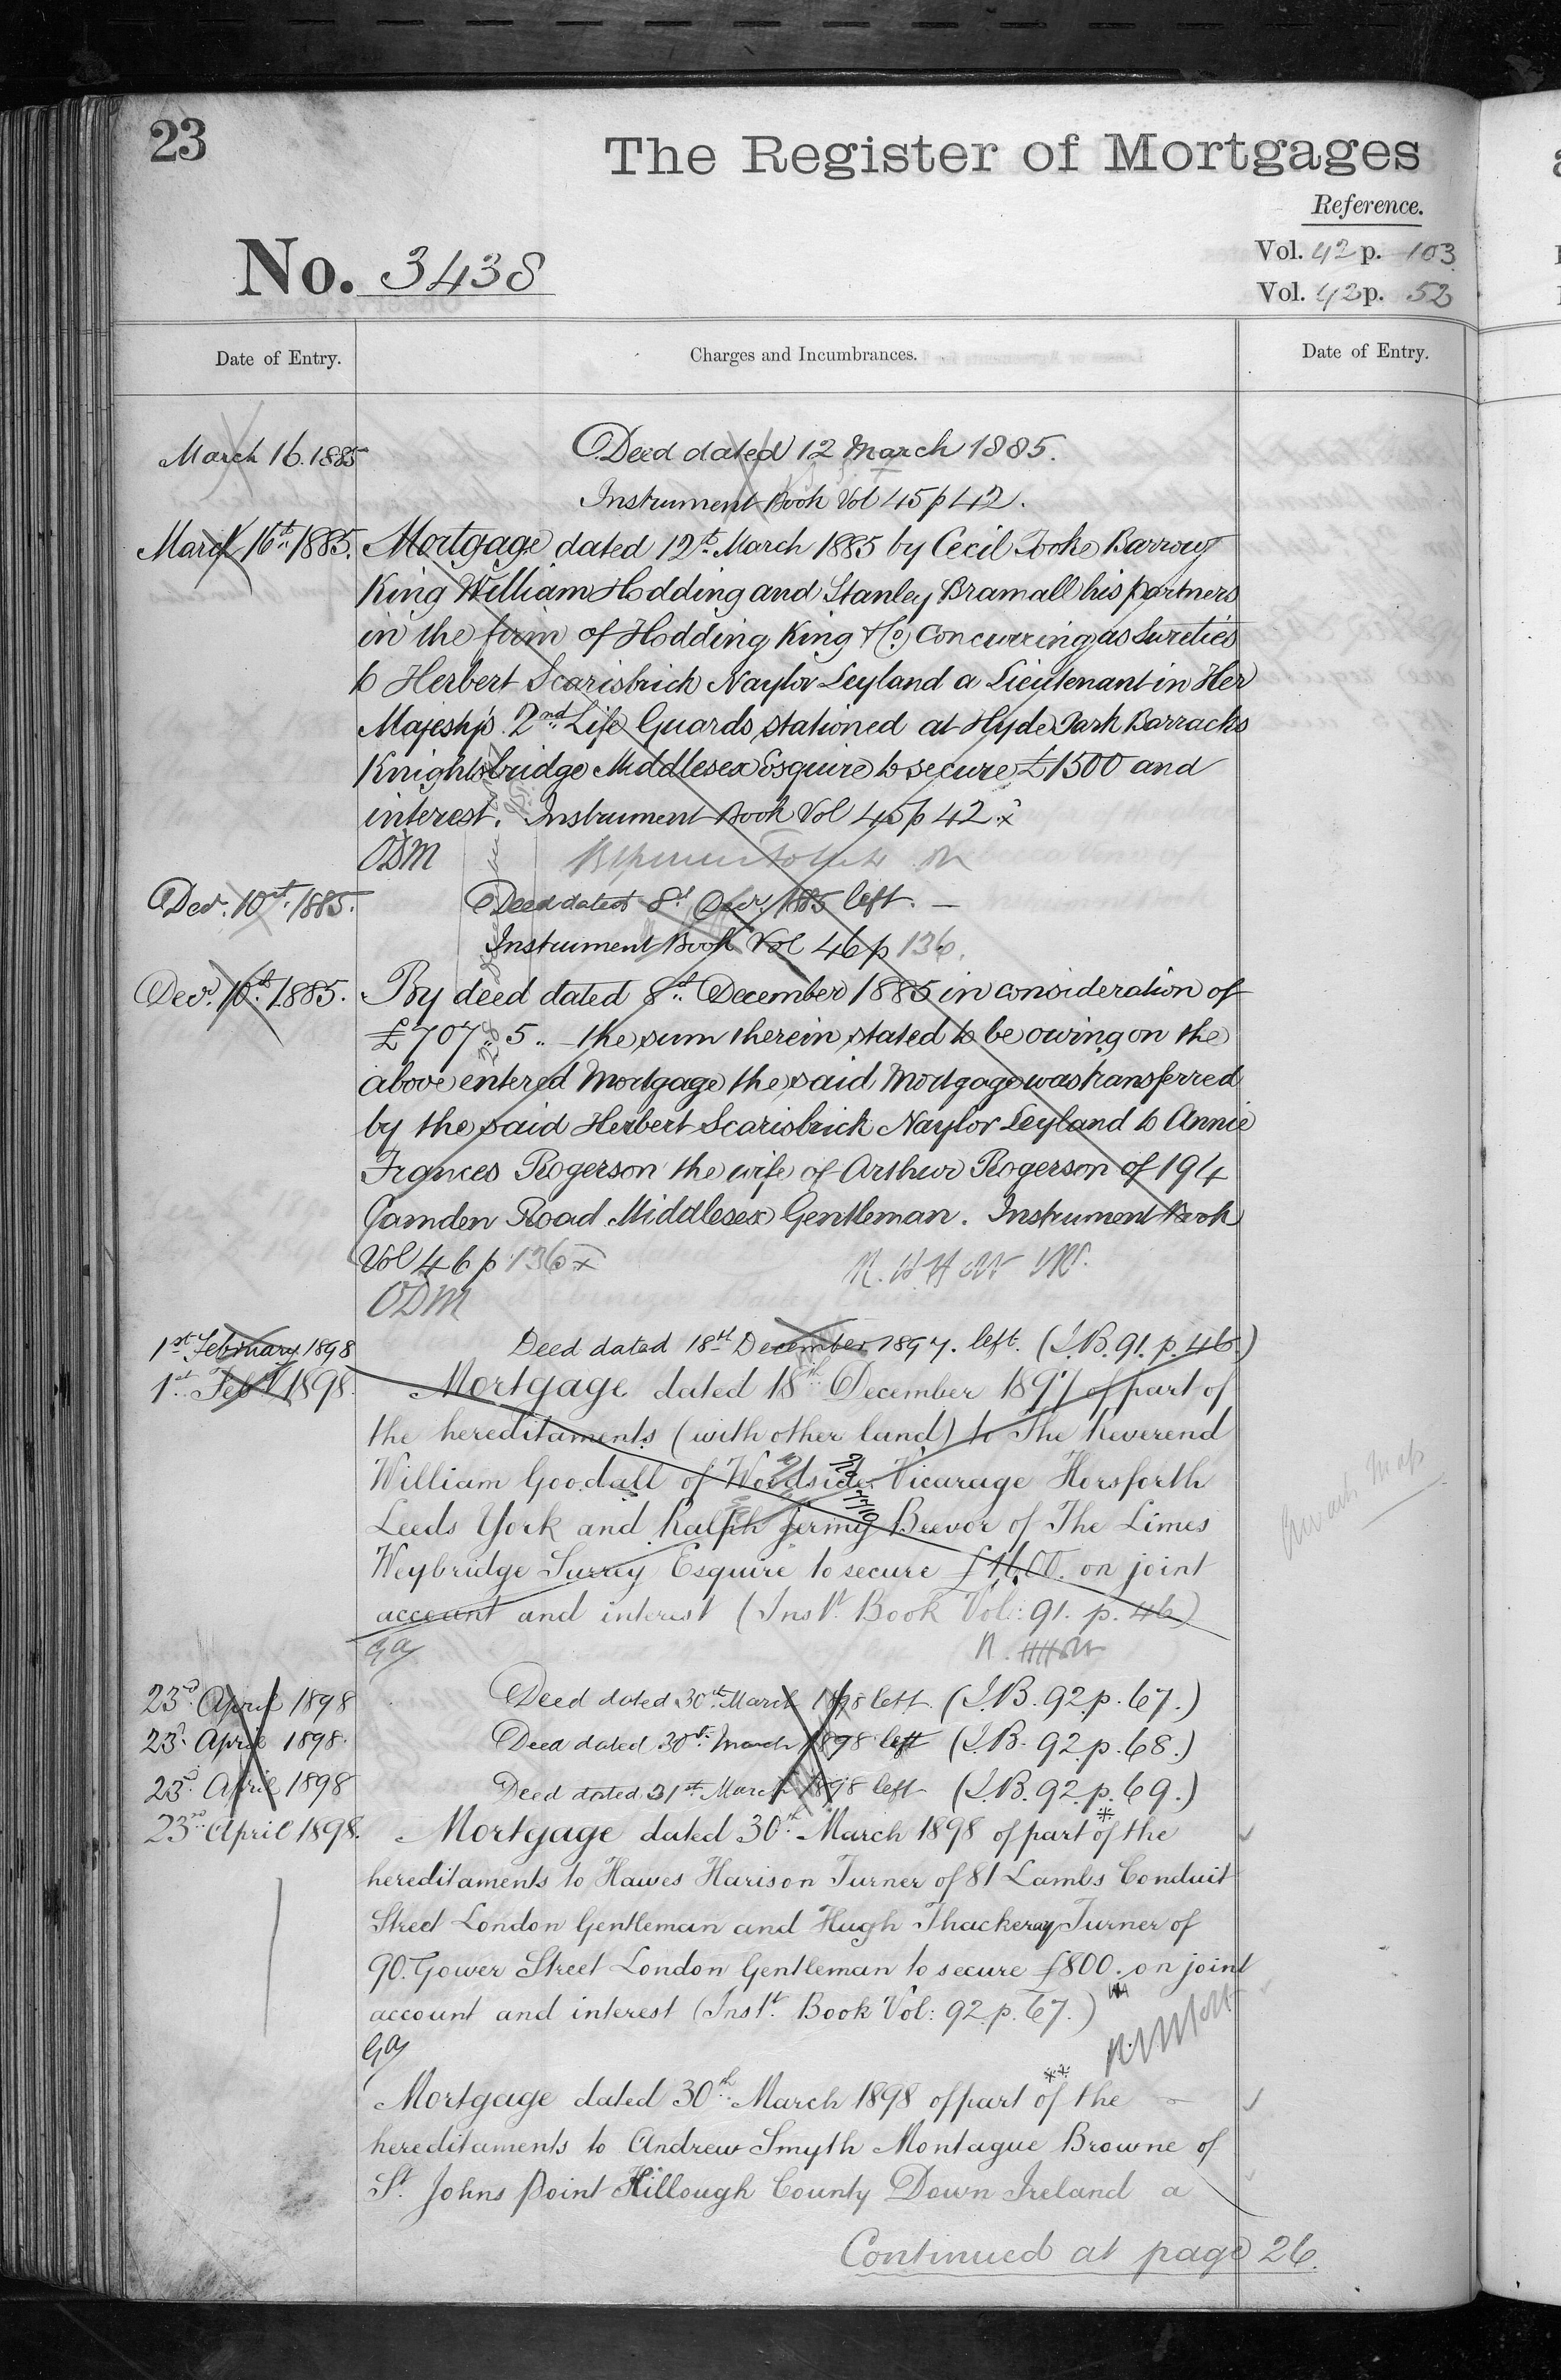 23
The Register of Mortgages
Reference.
No. 3438
Vol. 42 p. 103
Vol. 42 p. 52
Date of Entry.
Charges and Incumbrances.
Date of Entry.
March 16. 1885
Deed dated 12 March 1885.
Instrument Book Vol 45 p 42.
March 16th 1885.
Mortgage dated 12th March 1885 by Cecil Tooke Barrow
King William Hodding and Stanley Bramall his partners
in the firm of Hodding King & Co. concurring as Sureties
to Herbert Scarisbrick Naylor Leyland a Lieutenant in Her
Majesty's 2nd Life Guards stationed at Hyde Park Barracks
Knightsbridge Middlesex Esquire to secure £1500 and
interest. Instrument Book Vol 45 p 42 x
ODM
Decr. 10th 1885.
Deed dated 8th Decr. 1885 left. —
Instrument Book Vol 46 p 136.
Decr. 10th 1885.
By deed dated 8th December 1885 in consideration of
£707 .. 5 .. — the sum therein stated to be owing on the
above entered Mortgage the said Mortgage was transferred
by the said Herbert Scarisbrick Naylor Leyland to Annie
Frances Rogerson the wife of Arthur Rogerson of 194
Camden Road Middlesex Gentleman. Instrument Book
Vol 46 p 136 x
ODM
1st February 1898
Deed dated 18th December 1897. left. (I.B. 91. p. 46.)
1st Feby 1898.
Mortgage dated 18th December 1897 of part of
the hereditaments (with other land) to The Reverend
William Goodall of Woodside Vicarage Horsforth
Leeds York and Ralph Jermy Beevor of The Limes
Weybridge Surrey Esquire to secure £1600. on joint
account and interest (Inst. Book Vol: 91. p. 46)
GA
23rd April 1898
Deed dated 30th March 1898 left. (I.B. 92 p. 67.)
23rd April 1898.
Deed dated 30th March 1898 left (I.B. 92 p. 68.)
23rd April 1898
Deed dated 31st March 1898 left (I.B. 92. p. 69.)
23rd April 1898.
Mortgage dated 30th March 1898 of part * of the
hereditaments to Hawes Harison Turner of 81 Lambs Conduit
Street London Gentleman and Hugh Thackeray Turner of
90. Gower Street London Gentleman to secure £800. on joint
account and interest (Inst. Book Vol: 92. p. 67.)
GA
Mortgage dated 30th March 1898 of part ** of the
hereditaments to Andrew Smyth Montague Browne of
St. Johns Point Killough County Down Ireland a
Continued at page 26.